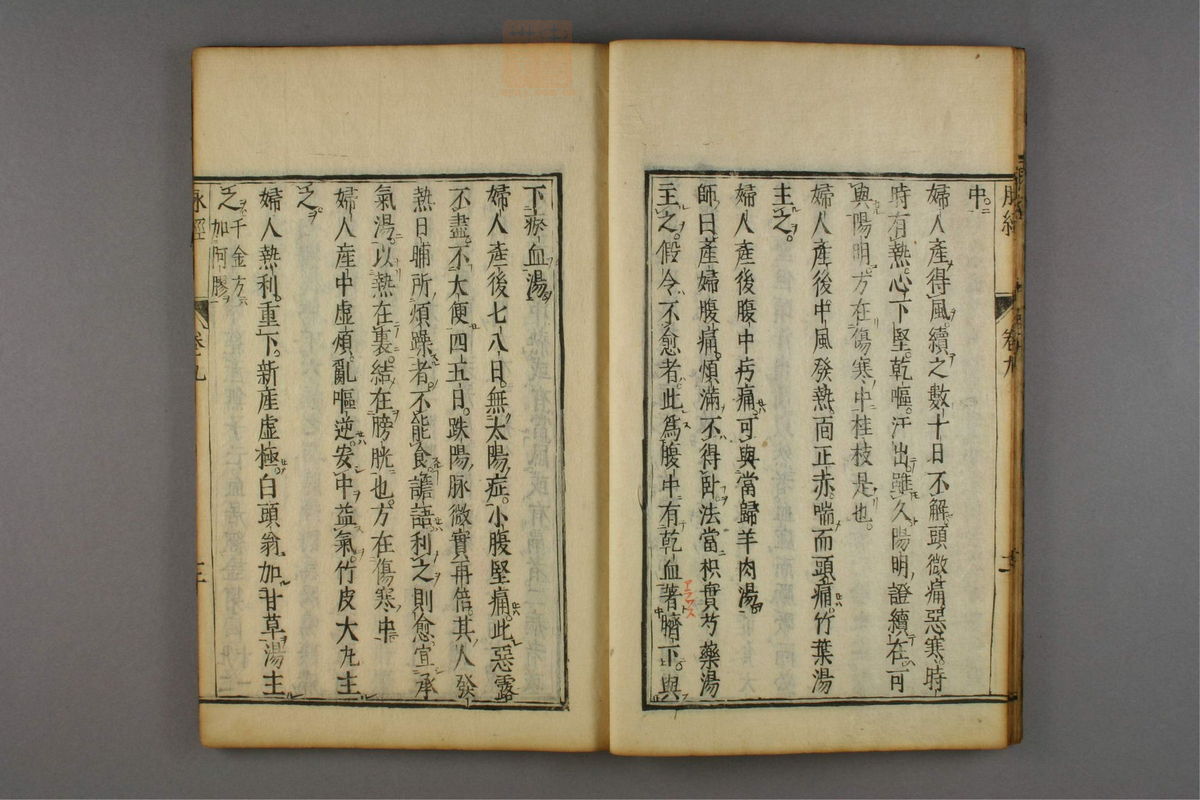 脉經 卷九
中
婦人產得風續之數十日不解頭微痛惡寒時
時有熱心下堅乾嘔汗出雖久陽明證續在可
與陽明方在傷寒中桂枝是也
婦人產後中風發熱面正赤喘而頭痛竹葉湯
主之
婦人產後腹中㽲痛可與當歸羊肉湯
師曰產婦腹痛煩滿不得臥法當枳實芍藥湯
主之假令不愈者此為腹中有乾血著臍下與
下瘀血湯
婦人產後七八日無太陽症小腹堅痛此惡露
不盡不大便四五日趺陽脉微實再倍其人發
熱日晡所煩躁者不能食譫語利之則愈宜承
氣湯以熱在裏結在膀胱也方在傷寒中
婦人產中虛煩亂嘔逆安中益氣竹皮大丸主
之
婦人熱利重下新産虛極白頭翁加甘草湯主
之千金方加阿膠
脉經 卷九